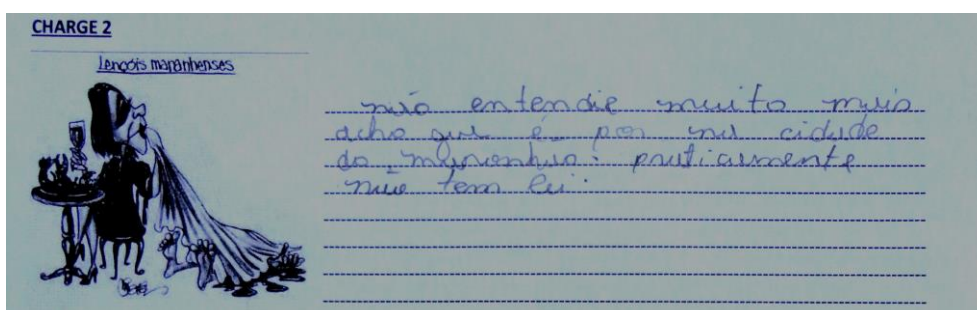 CHARGE 2
Lençóis maranhenses
não entendie muito mais
acho que é por na cidade
do maranhão. praticamente
não tem lei.